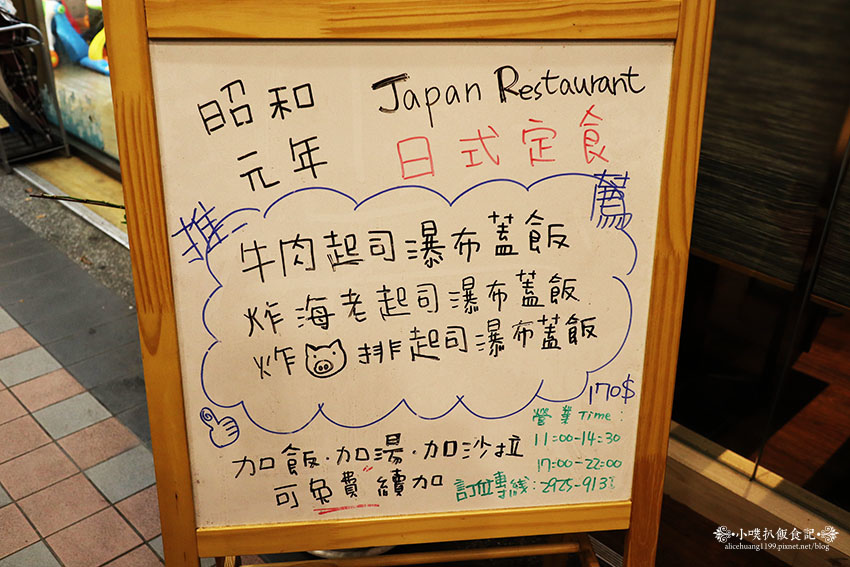 昭和 Japan Restaurant
元年 日式定食
推 薦
牛肉起司瀑布蓋飯
炸海老起司瀑布蓋飯
炸 排起司瀑布蓋飯
170$
加飯·加湯·加沙拉
可免費續加
營業Time:
11:00-14:30
17:00-22:00
訂位專線:2925-913
小噗扒飯食記
alicehuang1199.pixnet.net/blog